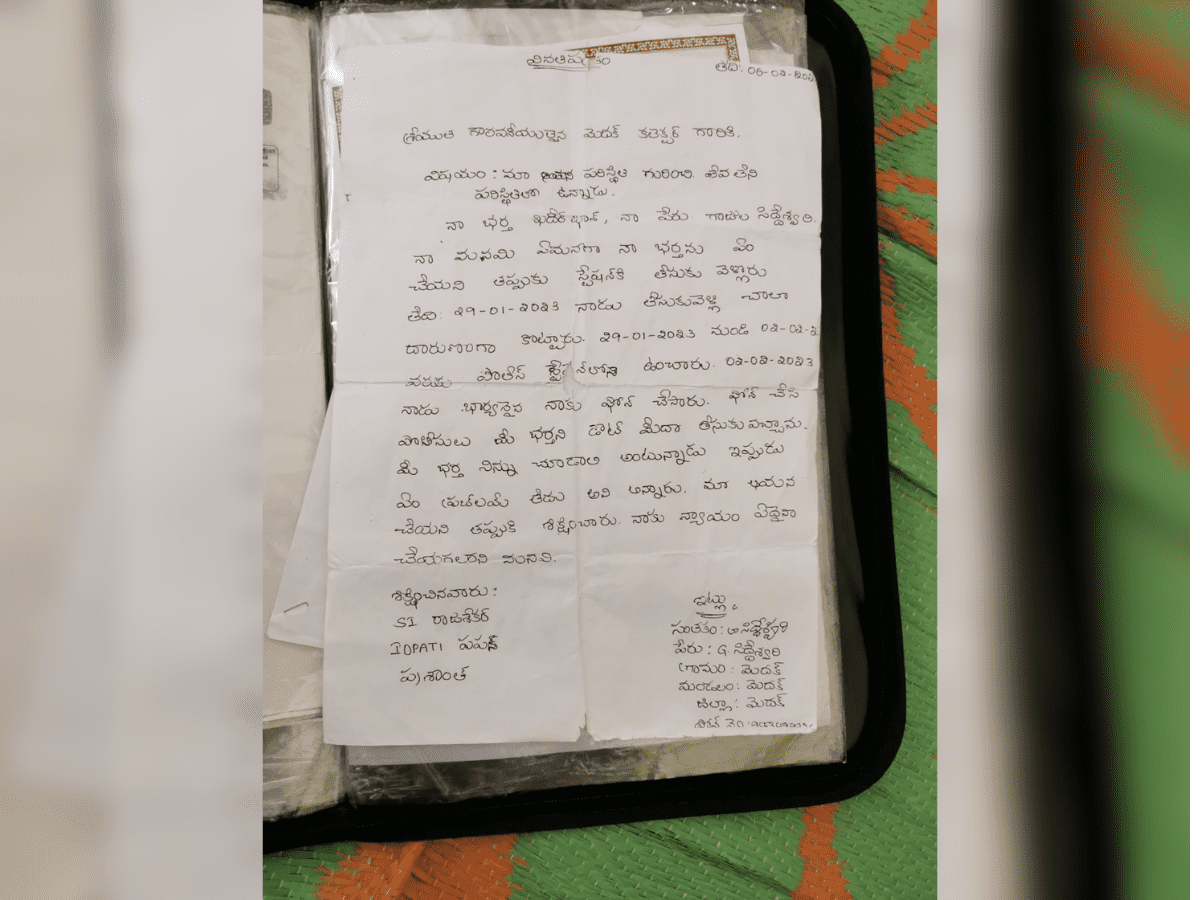 వినతిపత్రం
తేది: 06-02-202
శ్రీయుత గౌరవనీయులైన మెదక్ కలెక్టర్ గారికి.
విషయం : మా పరిస్థితి గురించి
పరిస్థితిలో ఉన్నాడు.
నా భర్త ఖదీర్ ఖాన్, నా పేరు గాజుల సిద్దేశ్వరి.
నా మనవి ఏమనగా నా భర్తను ఏం
చేయని తప్పుకు స్టేషన్‌కి తీసుకు వెళ్ళారు
తేది: 29-01-2023 నాడు తీసుకువెళ్లి చాలా
దారుణంగా కొట్టారు. 29-01-2023 నుండి 02-02-2
వరకు పోలీస్ స్టేషన్‌లోనే ఉంచారు. 02-02-2023
నాడు భార్యనైన నాకు ఫోన్ చేసారు. ఫోన్ చేసి
పోలీసులు మీ భర్తని డౌట్ మీదా తీసుకువచ్చాను.
మీ భర్త నిన్ను చూడాలి అంటున్నాడు ఇప్పుడు
ఏం ప్రబలమ్ లేదు అని అన్నారు. మా ఆయన
చేయని తప్పుకి శిక్షించారు. నాకు న్యాయం ఏదైనా
చేయగలరని మనవి.
శిక్షించినవారు :
SI రాజశేకర్
IDPATI పవన్
ప్రశాంత్
ఇట్లు,
సంతకం :
పేరు : G. సిద్దేశ్వరి
గ్రామం : మెదక్
మండలం : మెదక్
జిల్లా : మెదక్